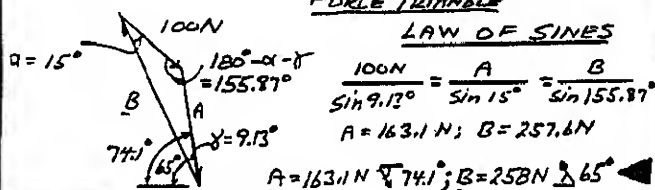 FORCE TRIANGLE
LAW OF SINES
100N
α = 15°
180°-α-γ
=155.87°
B
A
γ=9.13°
74.1°
65°
100N/sin 9.13° = A/sin 15° = B/sin 155.87°
A = 163.1 N; B = 257.6N
A=163.1N 74.1°; B=258N 65°